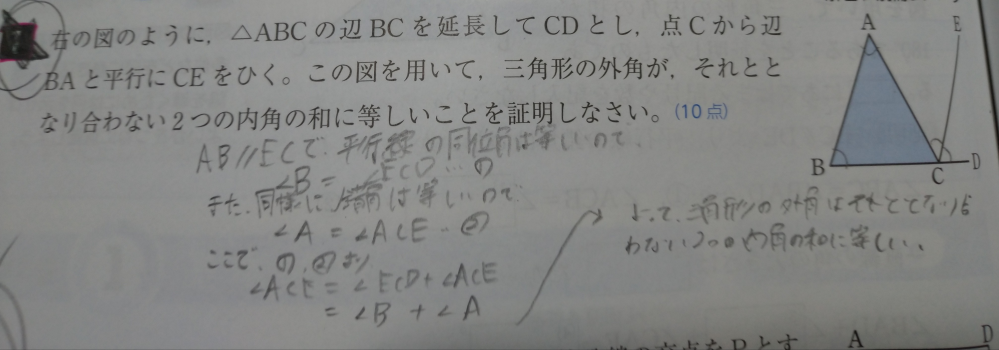 右の図のように，△ABC の辺 BC を延長して CD とし，点 C から辺
BA と平行に CE をひく。この図を用いて，三角形の外角が，それとと
なり合わない2つの内角の和に等しいことを証明しなさい。(10点)
A
E
B
C
D
AB//ECで、平行線の同位角は等しいので、
∠B = ∠ECD …①
また、同様に錯角は等しいので
∠A = ∠ACE …②
ここで、①,②より
∠ACE = ∠ECD + ∠ACE
= ∠B + ∠A
よって、三角形の外角はそれととなり合
わない2つの内角の和に等しい、
A
D